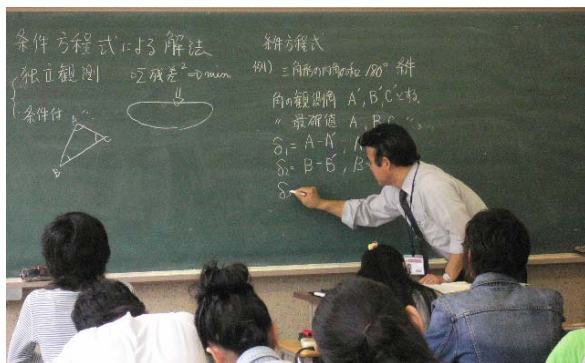 条件方程式による解法
独立観測 ㋺Σ残差²⇒min
条件付 〃
A
B
C
条件方程式
例1) 三角形の内角の和 180° 条件
角の観測値 A', B', C' とね
〃 最確値 A, B, C 〃
δ₁= A-A',
δ₂= B-B',
δ